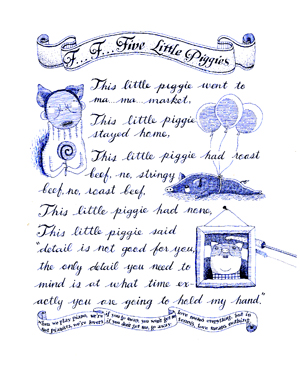 F... F... Five Little Piggies
This little piggie went to
ma... ma... market.
This little piggie
stayed home,
This little piggie had roast
beef, no, stringy
beef, no, roast beef.
This little piggie had none,
This little piggie said
"detail is not good for you,
the only detail you need to
mind is at what time ex-
actly you are going to hold my hand."
when we play piano, we're
not pianists, we're lovers
if you go away you won't get
if you don't get me, go away
love means everything, but in
tennis, love means nothing